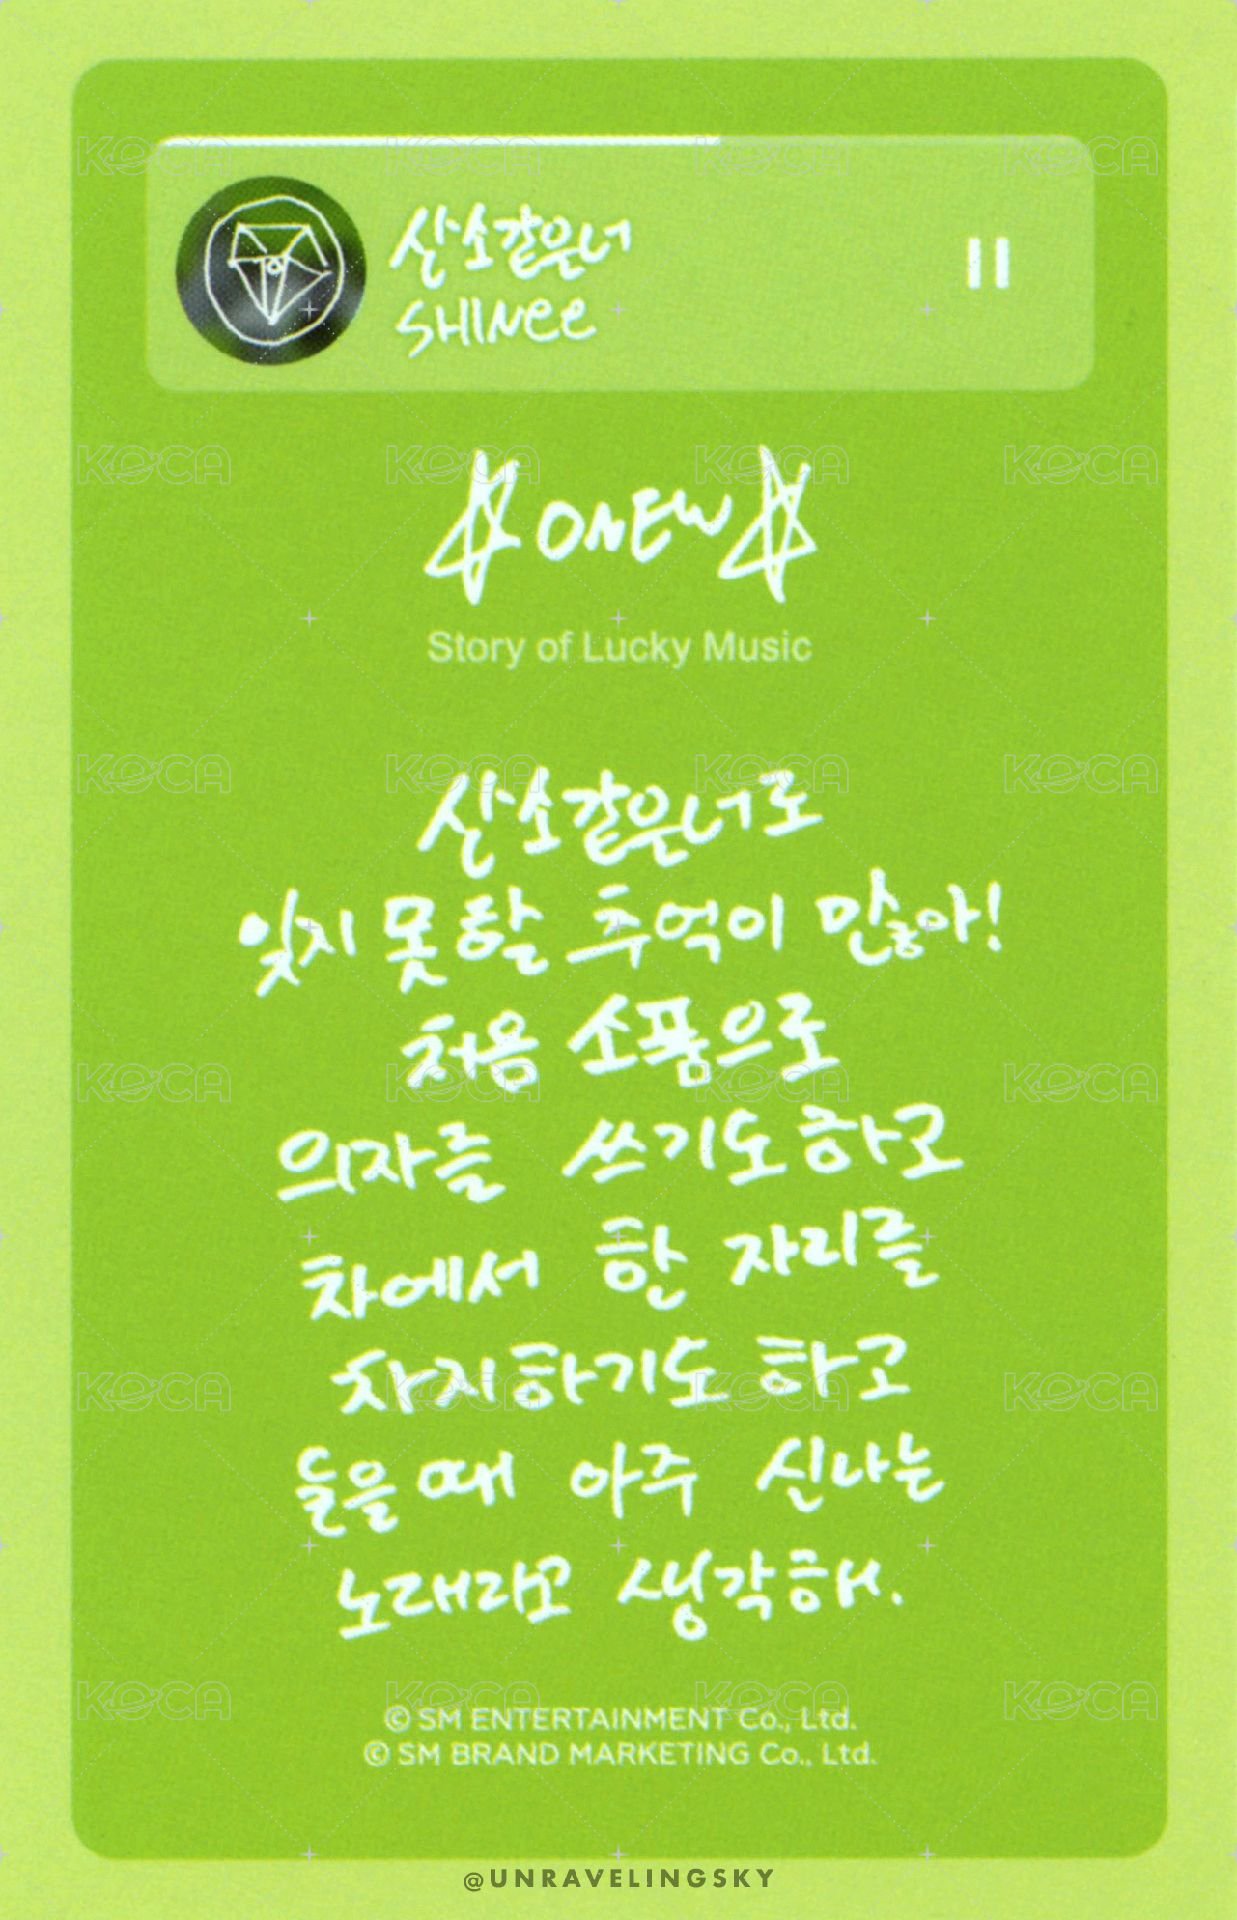 산소같은너
SHINee
ONEW
Story of Lucky Music
산소같은너로
잊지 못할 추억이 많아!
처음 소품으로
의자를 쓰기도하고
차에서 한 자리를
차지하기도 하고
들을때 아주 신나는
노래라고 생각해.
© SM ENTERTAINMENT Co., Ltd.
© SM BRAND MARKETING Co., Ltd.
@UNRAVELINGSKY
KOCA